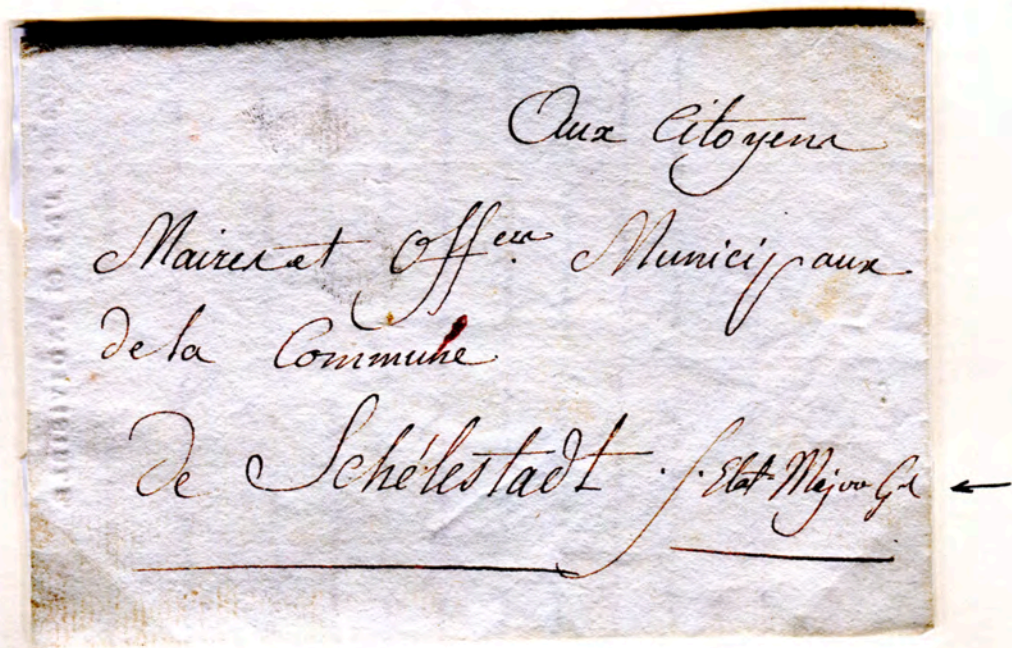 Aux Citoyens
Maires et Off.ers Municipaux
de la Commune
de Schélestadt. Etat-Major Gal